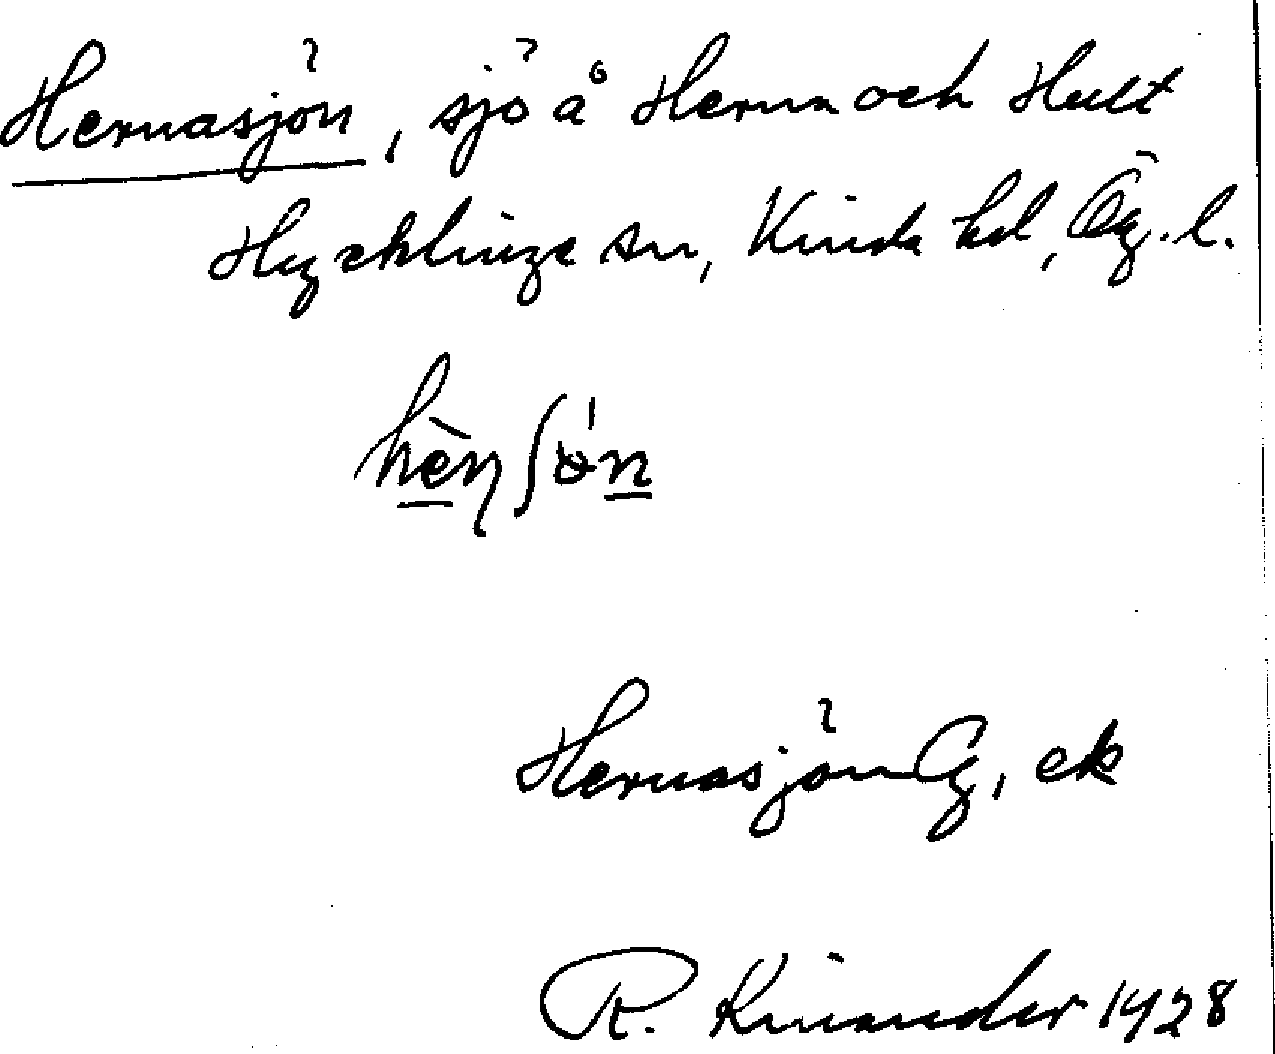 Hernasjön, sjö å Herrna och Hult
Hycklinge sn, Kinda hd, Ög. l.
hènʃön
Hernasjön G, ek
R. Kinander 1928